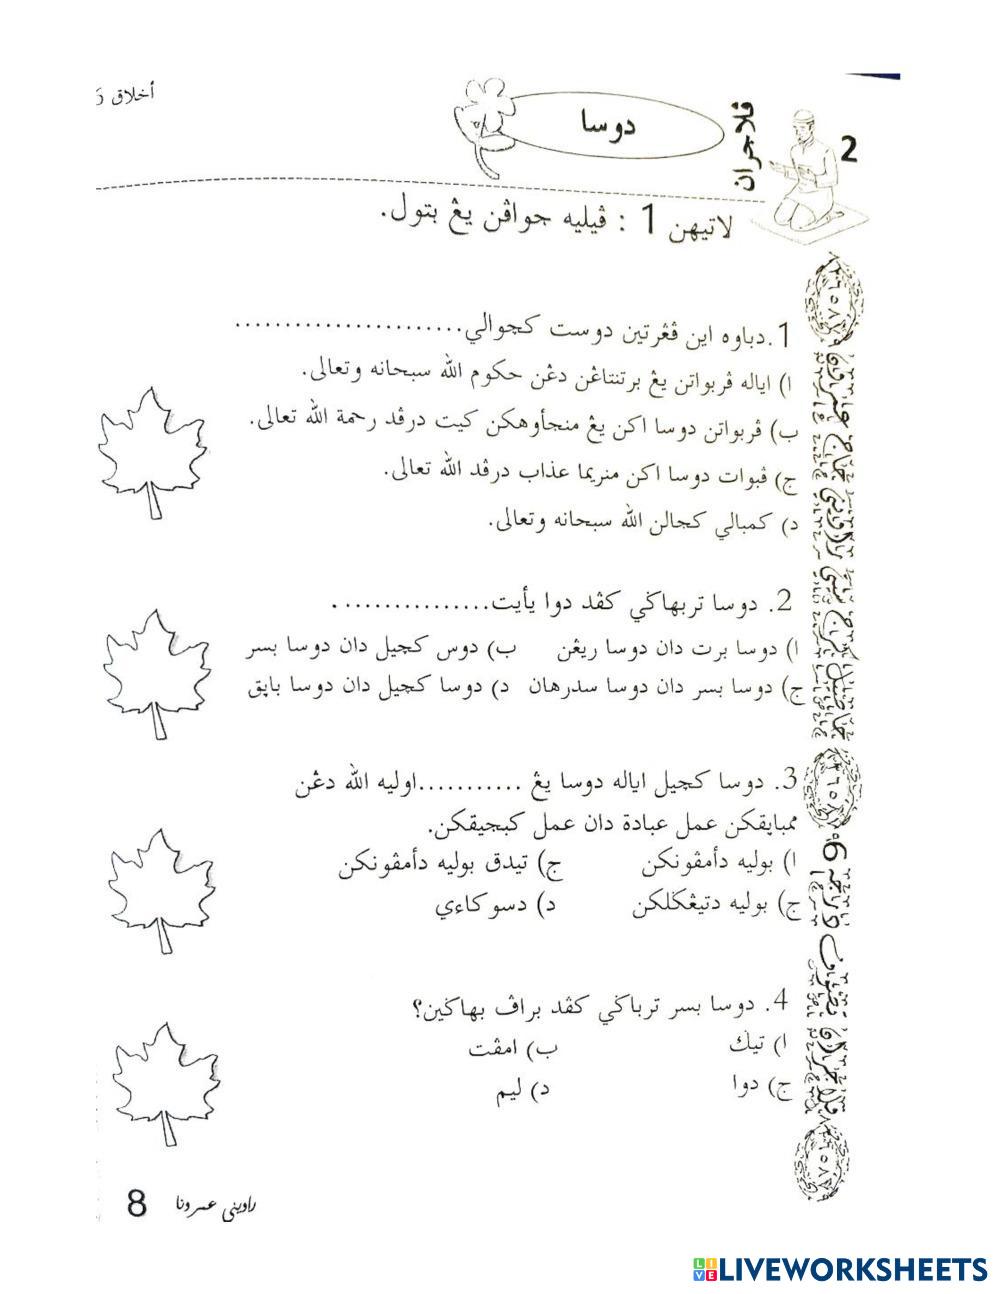 أخلاق 6
دوسا
ڤلاجران
2
لاتيهن 1 : ڤيليه جواڤن يڠ بتول.
1.دباوه اين ڤڠرتين دوست كچوالي.......................
ا) اياله ڤربواتن يڠ برتنتاڠن دڠن حكوم الله سبحانه وتعالى.
ب) ڤربواتن دوسا اكن يڠ منجأوهكن كيت درڤد رحمة الله تعالى.
ج) ڤبوات دوسا اكن منريما عذاب درڤد الله تعالى.
د) كمبالي كجالن الله سبحانه وتعالى.
2. دوسا تربهاڬي كڤد دوا يأيت................
ا) دوسا برت دان دوسا ريڠن ب) دوس كچيل دان دوسا بسر
ج) دوسا بسر دان دوسا سدرهان د) دوسا كچيل دان دوسا باڽق
3. دوسا كچيل اياله دوسا يڠ ...........اوليه الله دڠن
ممباڽقكن عمل عبادة دان عمل كبجيقكن.
ا) بوليه دأمڤونكن ج) تيدق بوليه دأمڤونكن
ج) بوليه دتيڠڬلكن د) دسوكاءي
4. دوسا بسر ترباڬي كڤد براڤ بهاڬين؟
ا) تيڬ ب) امڤت
ج) دوا د) ليم
8 راويني عمرونا
LIVEWORKSHEETS